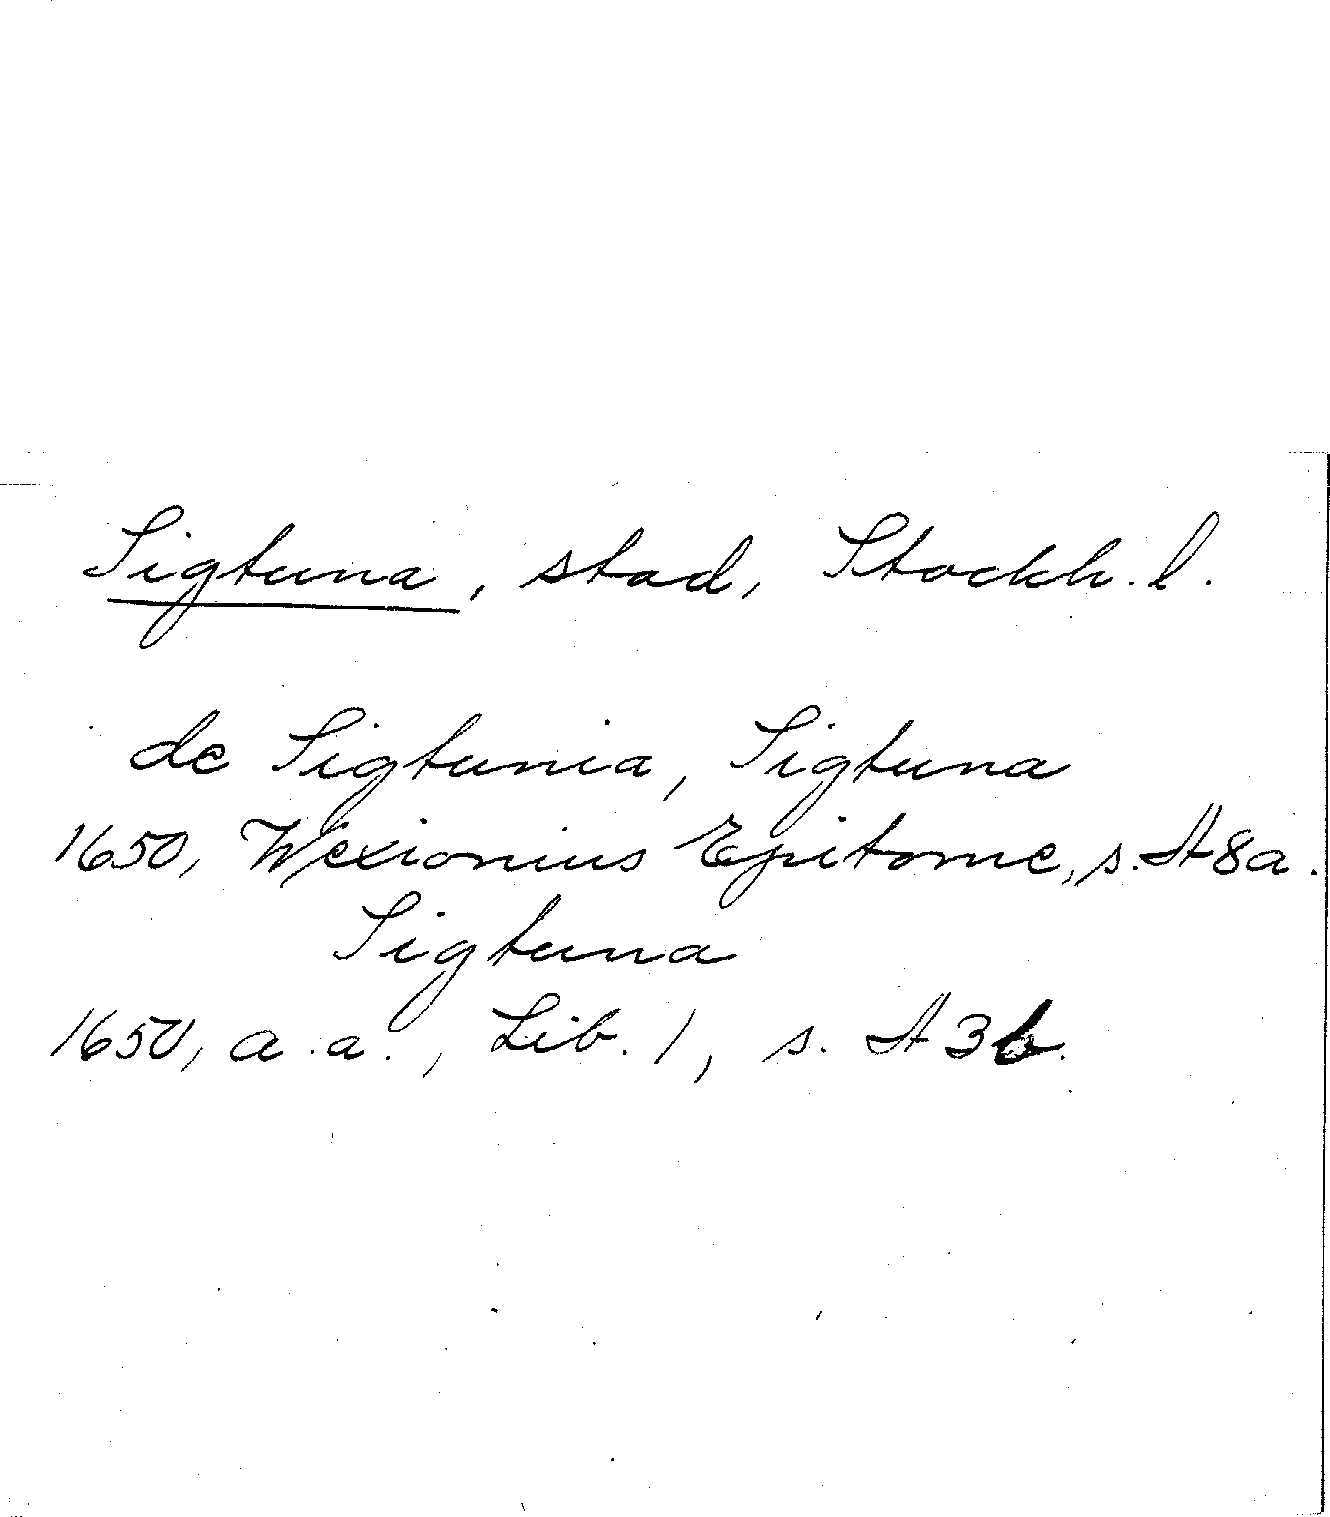 Sigtuna, stad, Stockh. l.
de Sigtunia, Sigtuna
1650, Wexionius Epitome, s. A8a.
Sigtuna
1650, a.a., Lib. 1, s. A3b.